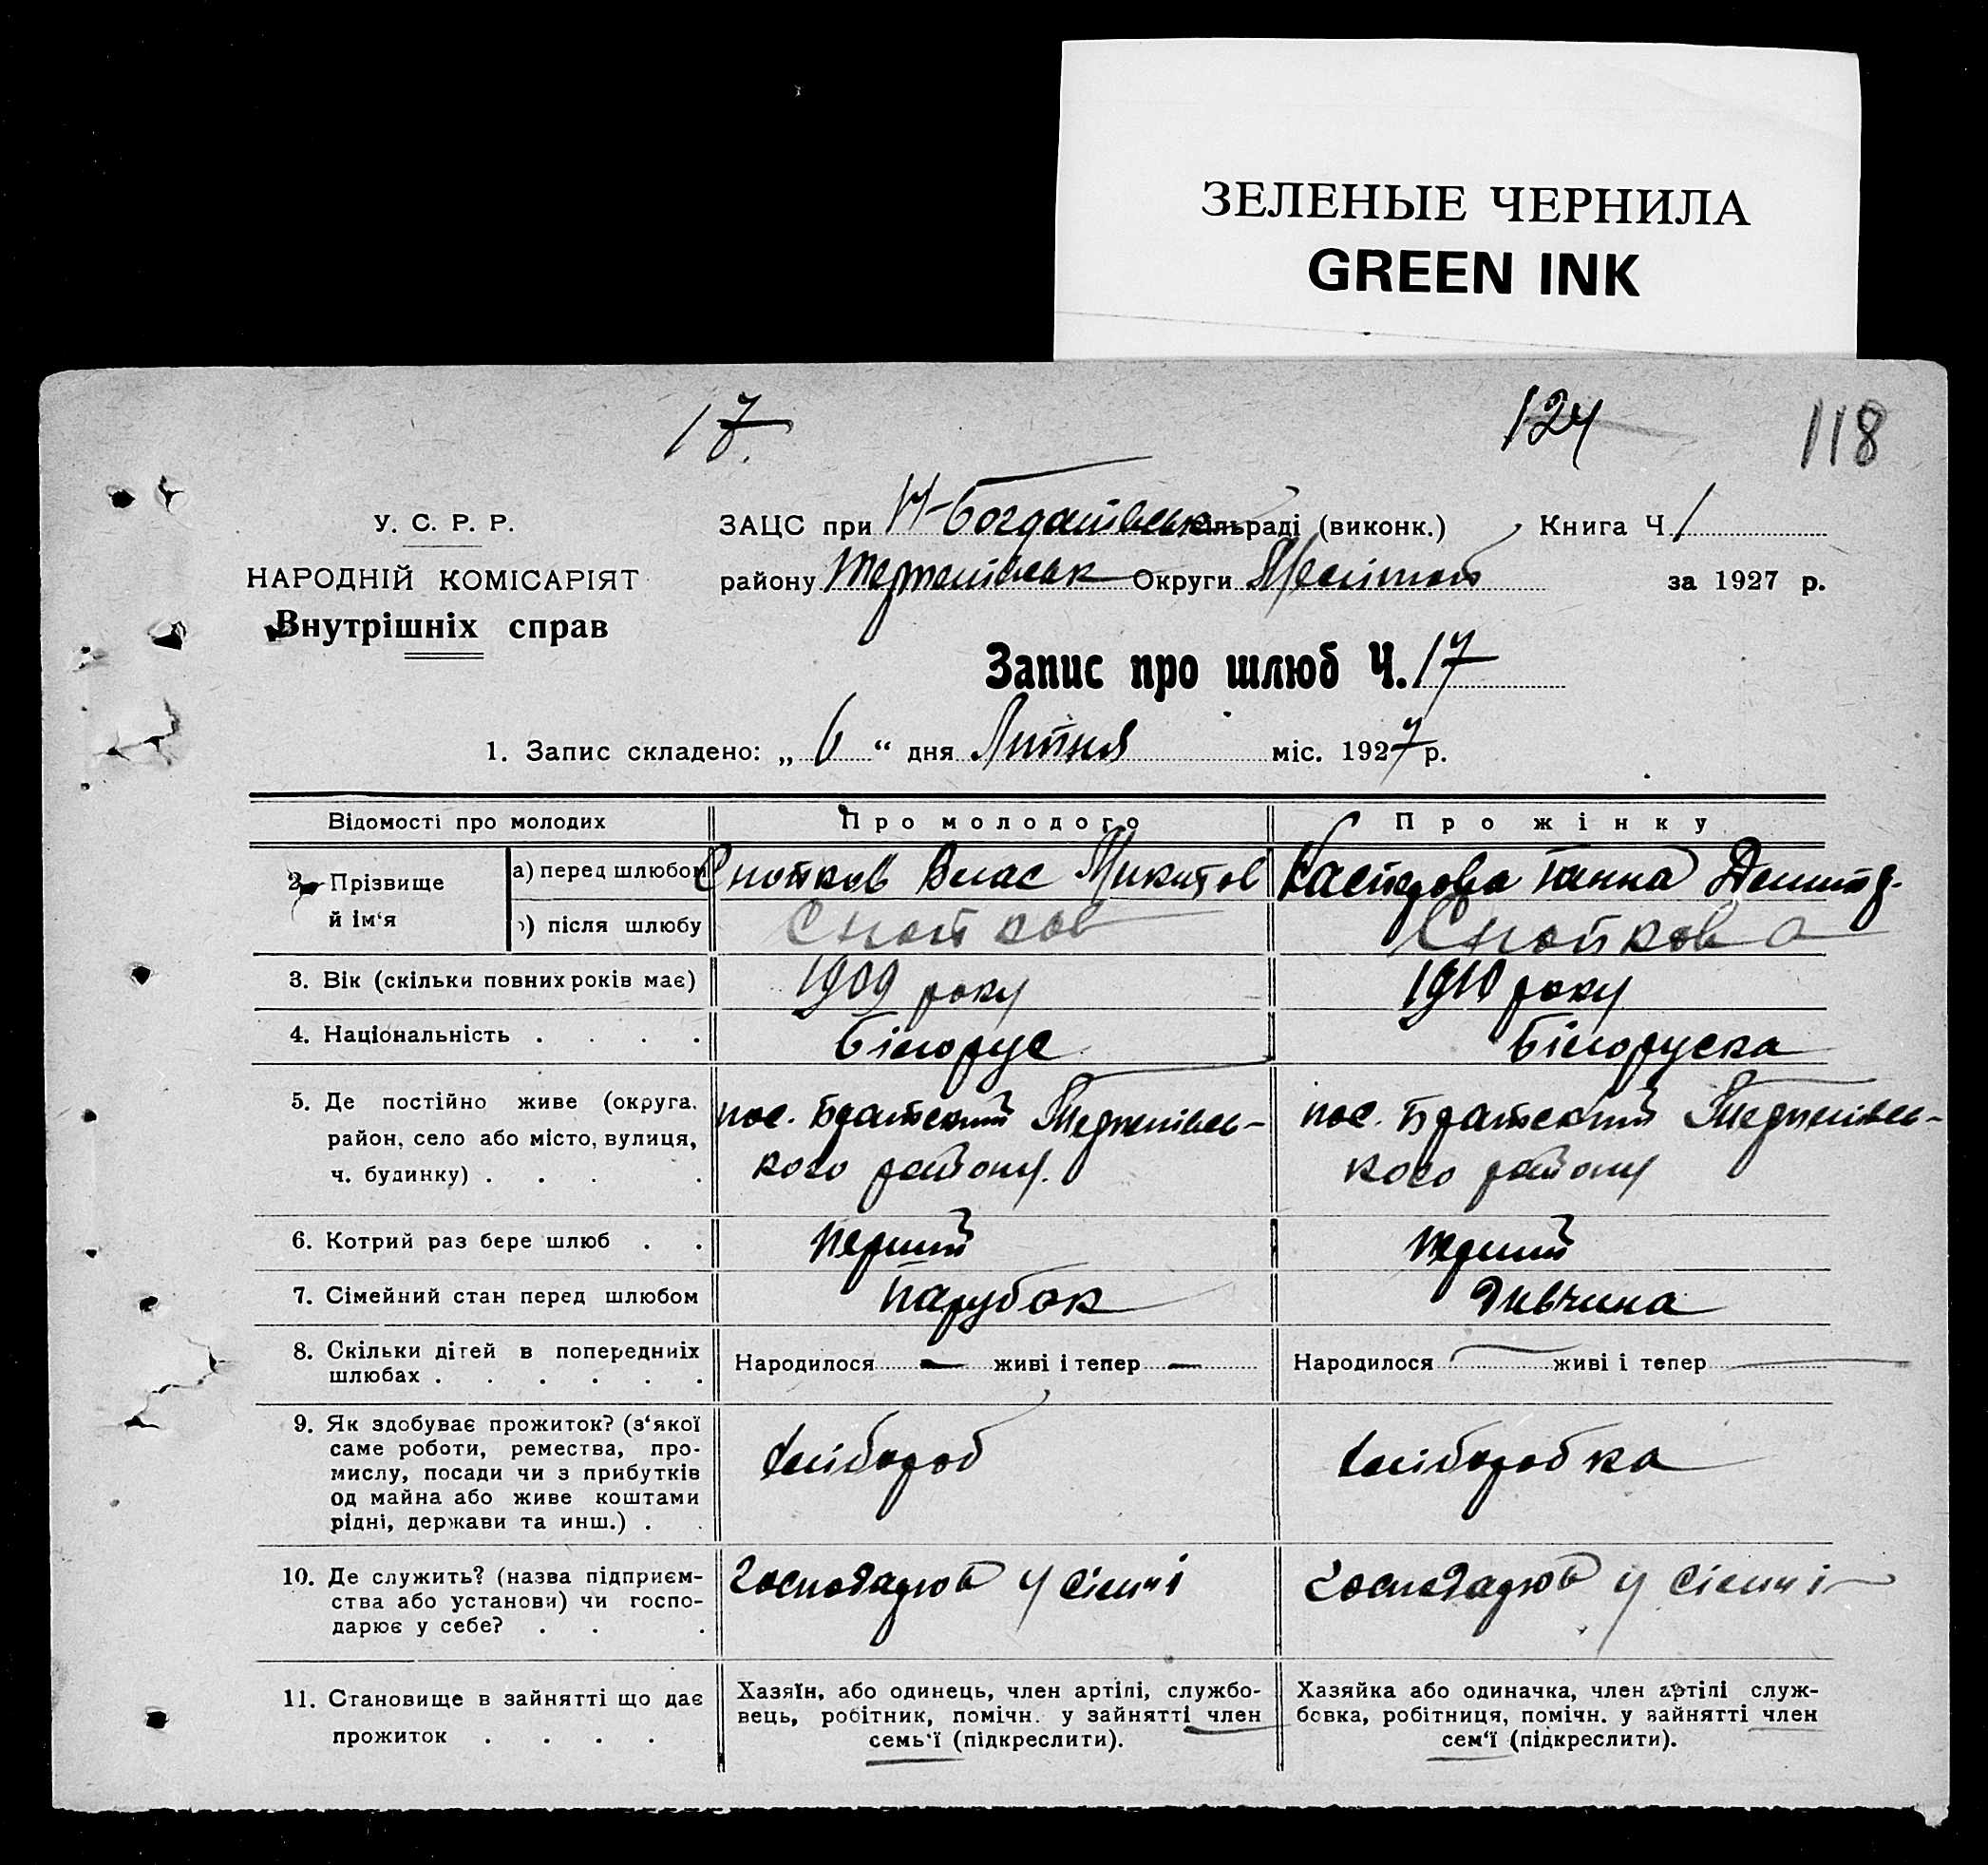 ЗЕЛЕНЫЕ ЧЕРНИЛА
GREEN INK
17.
124
118
У. С. Р. Р.
НАРОДНІЙ КОМІСАРІЯТ
Внутрішніх справ
ЗАЦС при Н-Богданівськ сільраді (виконк.) Книга Ч 1
району Округи за 1927 р.
Запис про шлюб Ч. 17
1. Запис складено: „ 6 “ дня Липня міс. 1927 р.
Відомості про молодих
Про молодого
Про жінку
2. Прізвище й ім‘я
а) перед шлюбом
Влас Микитов
Ганна
б) після шлюбу
3. Вік (скільки повних років має)
1909 року
1910 року
4. Національність . . . .
Білорус
Білоруска
5. Де постійно живе (округа,
район, село або місто, вулиця,
ч. будинку) . . . .
пос. Братський
кого району.
пос. Братський
кого району
6. Котрий раз бере шлюб . .
перший
перший
7. Сімейний стан перед шлюбом
Парубок
Дивчина
8. Скільки дітей в попередниіх
шлюбах . . . . . .
Народилося — живі і тепер —
Народилося — живі і тепер —
9. Як здобуває прожиток? (з‘якої
саме роботи, ремества, про-
мислу, посади чи з прибутків
од майна або живе коштами
рідні, держави та инш.) . .
хлібороб
хлоборобка
10. Де служить? (назва підприєм-
ства або установи) чи госпо-
дарює у себе? . . .
господарюв у сімйі
господарюв у сімйі
11. Становище в зайнятті що дає
прожиток . . . .
Хазяїн, або одинець, член артілі, службо-
вець, робітник, помічн. у зайнятті член
семь‘ї (підкреслити).
Хазяйка або одиначка, член артілі служ-
бовка, робітниця, помічн. у зайнятті член
сем‘ї (підкреслити).